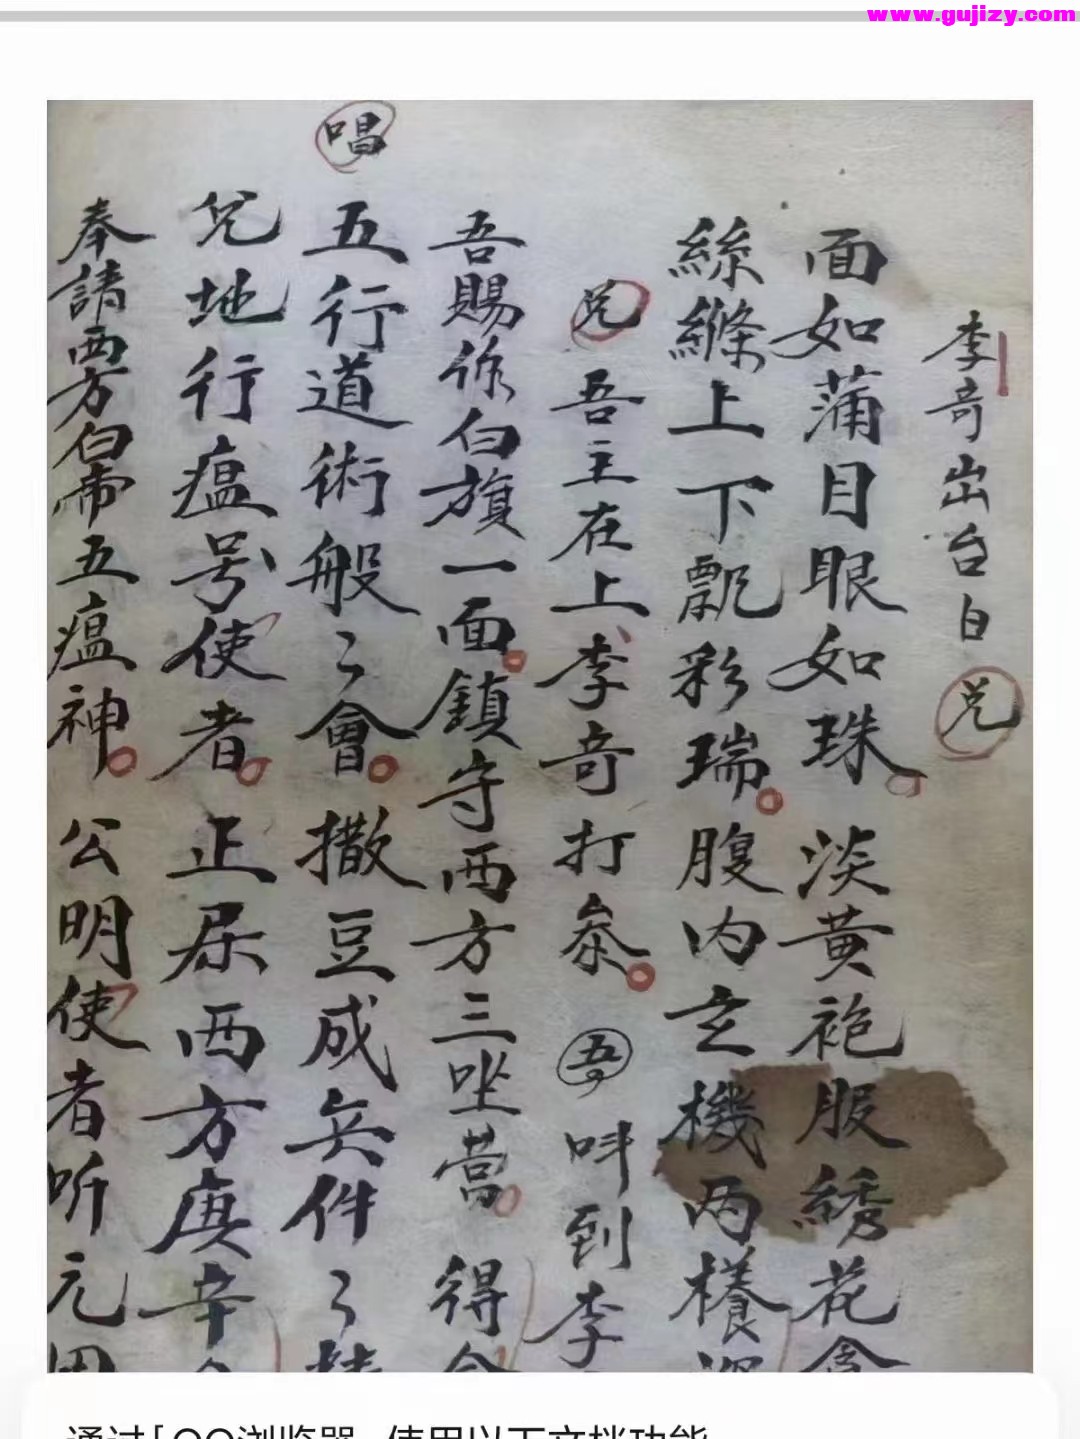 www.gujizy.com
李奇出台白 兑
面如蒲目眼如珠。淡黄袍服綉花
絲縧上下飄彩瑞。腹内玄機两樣
兑 吾主在上李奇打叅。吾叫到李
吾賜你白旗一面。鎮守西方三坐营。得
唱
五行道術般〻會。撒豆成兵件〻
兑地行瘟号使者。正居西方庚辛
奉請西方白帝五瘟神。公明使者听元